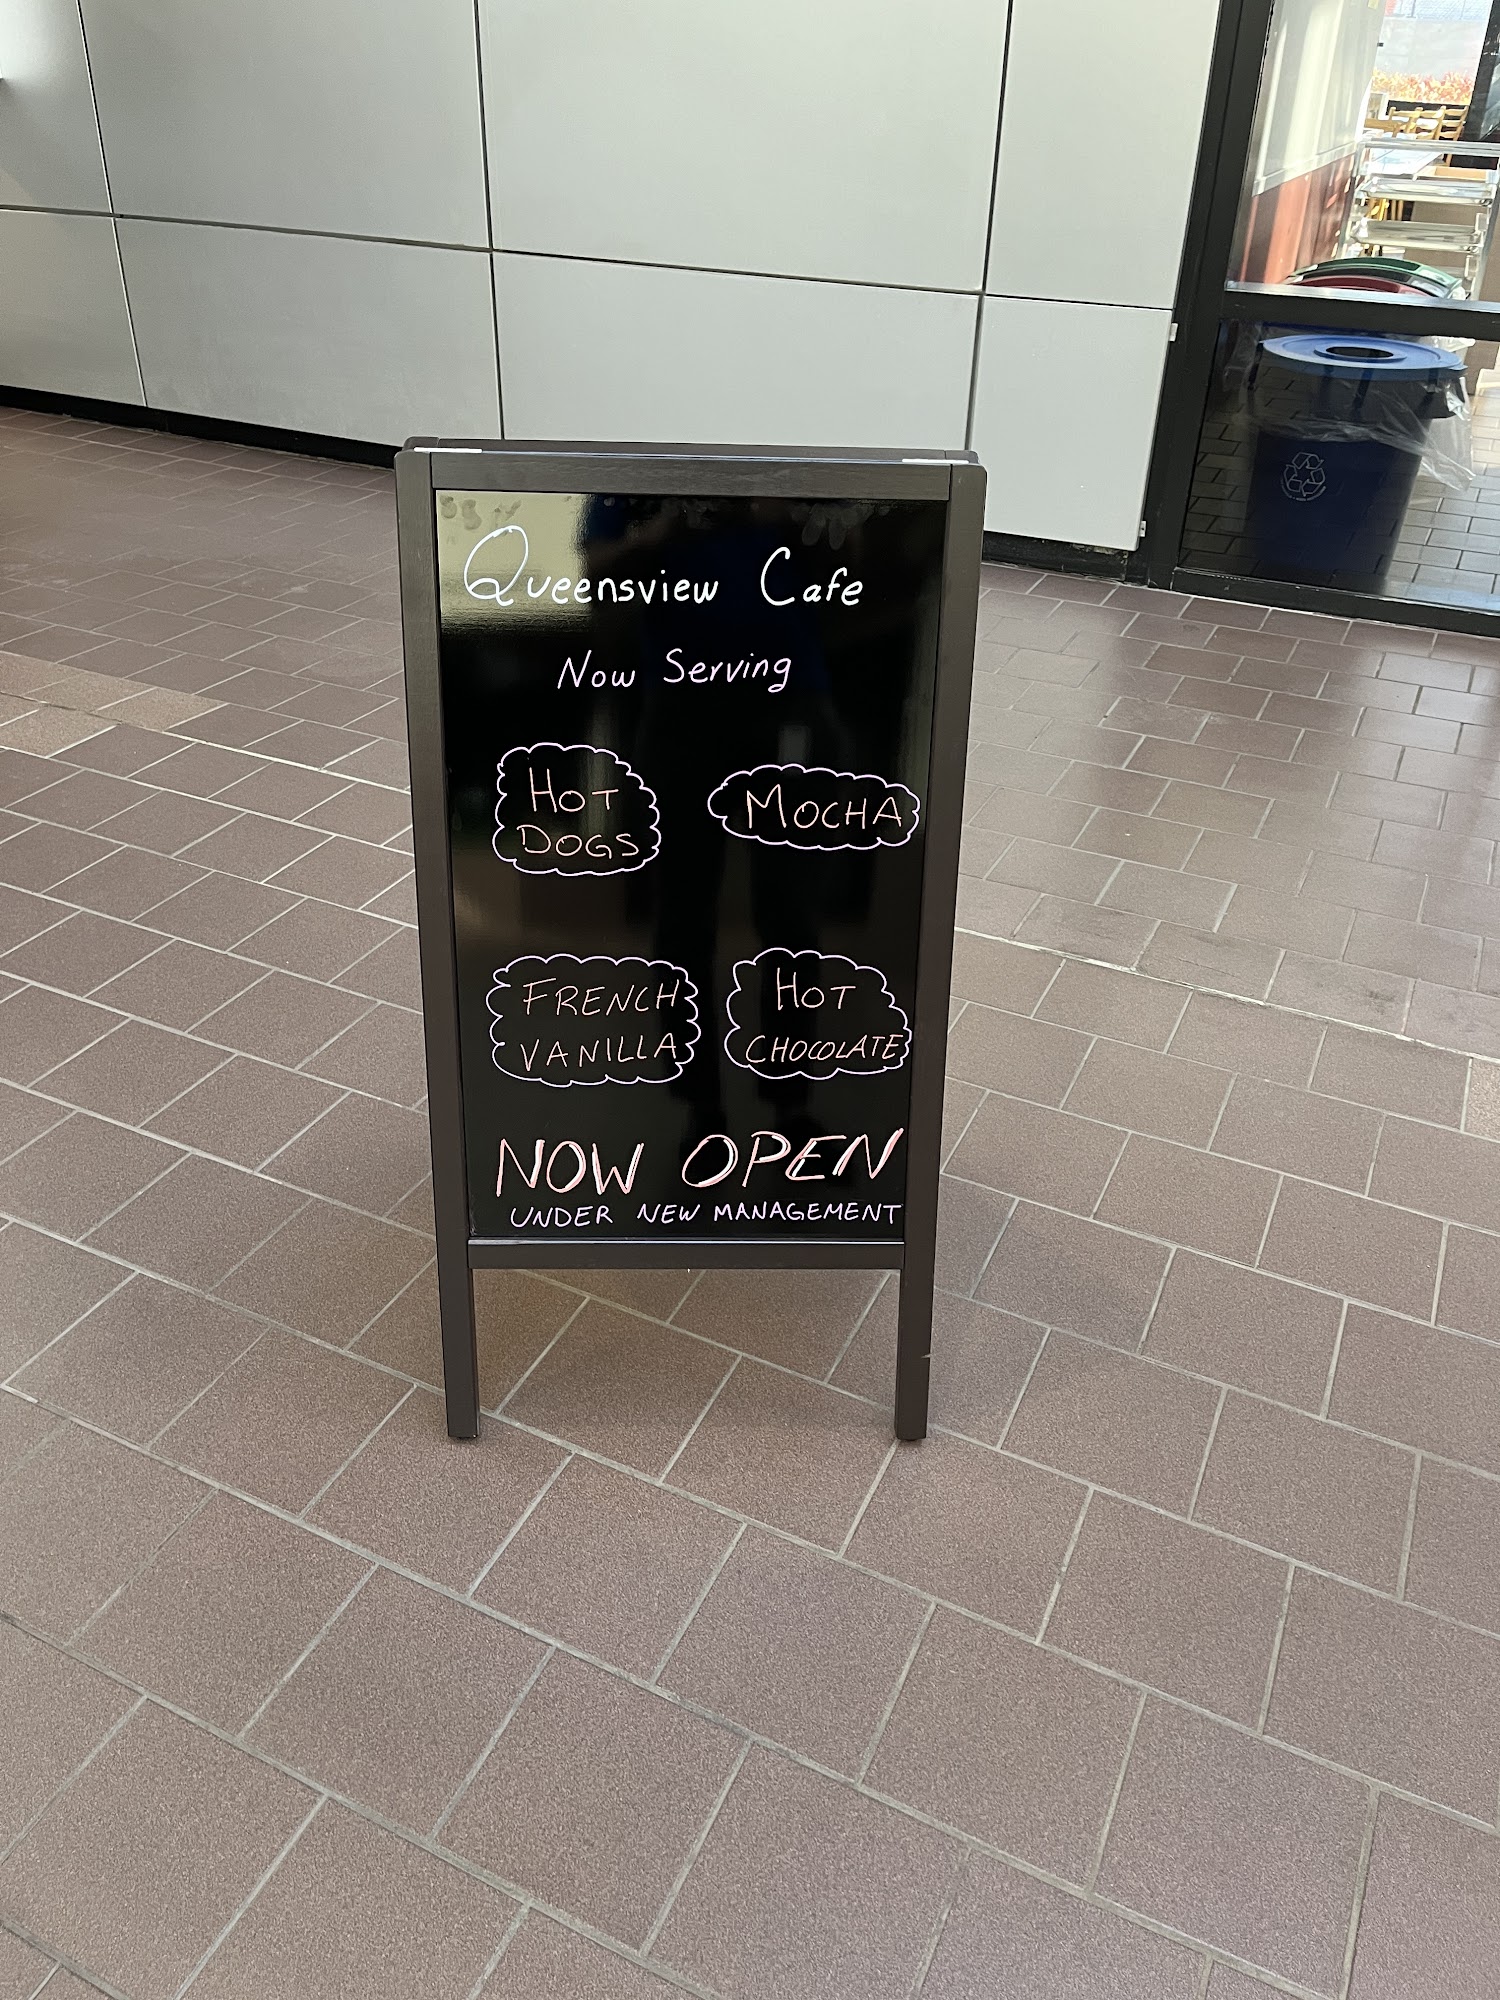 Queensview Cafe
Now Serving
HOT
DOGS
MOCHA
FRENCH
VANILLA
HOT
CHOCOLATE
NOW OPEN
UNDER NEW MANAGEMENT